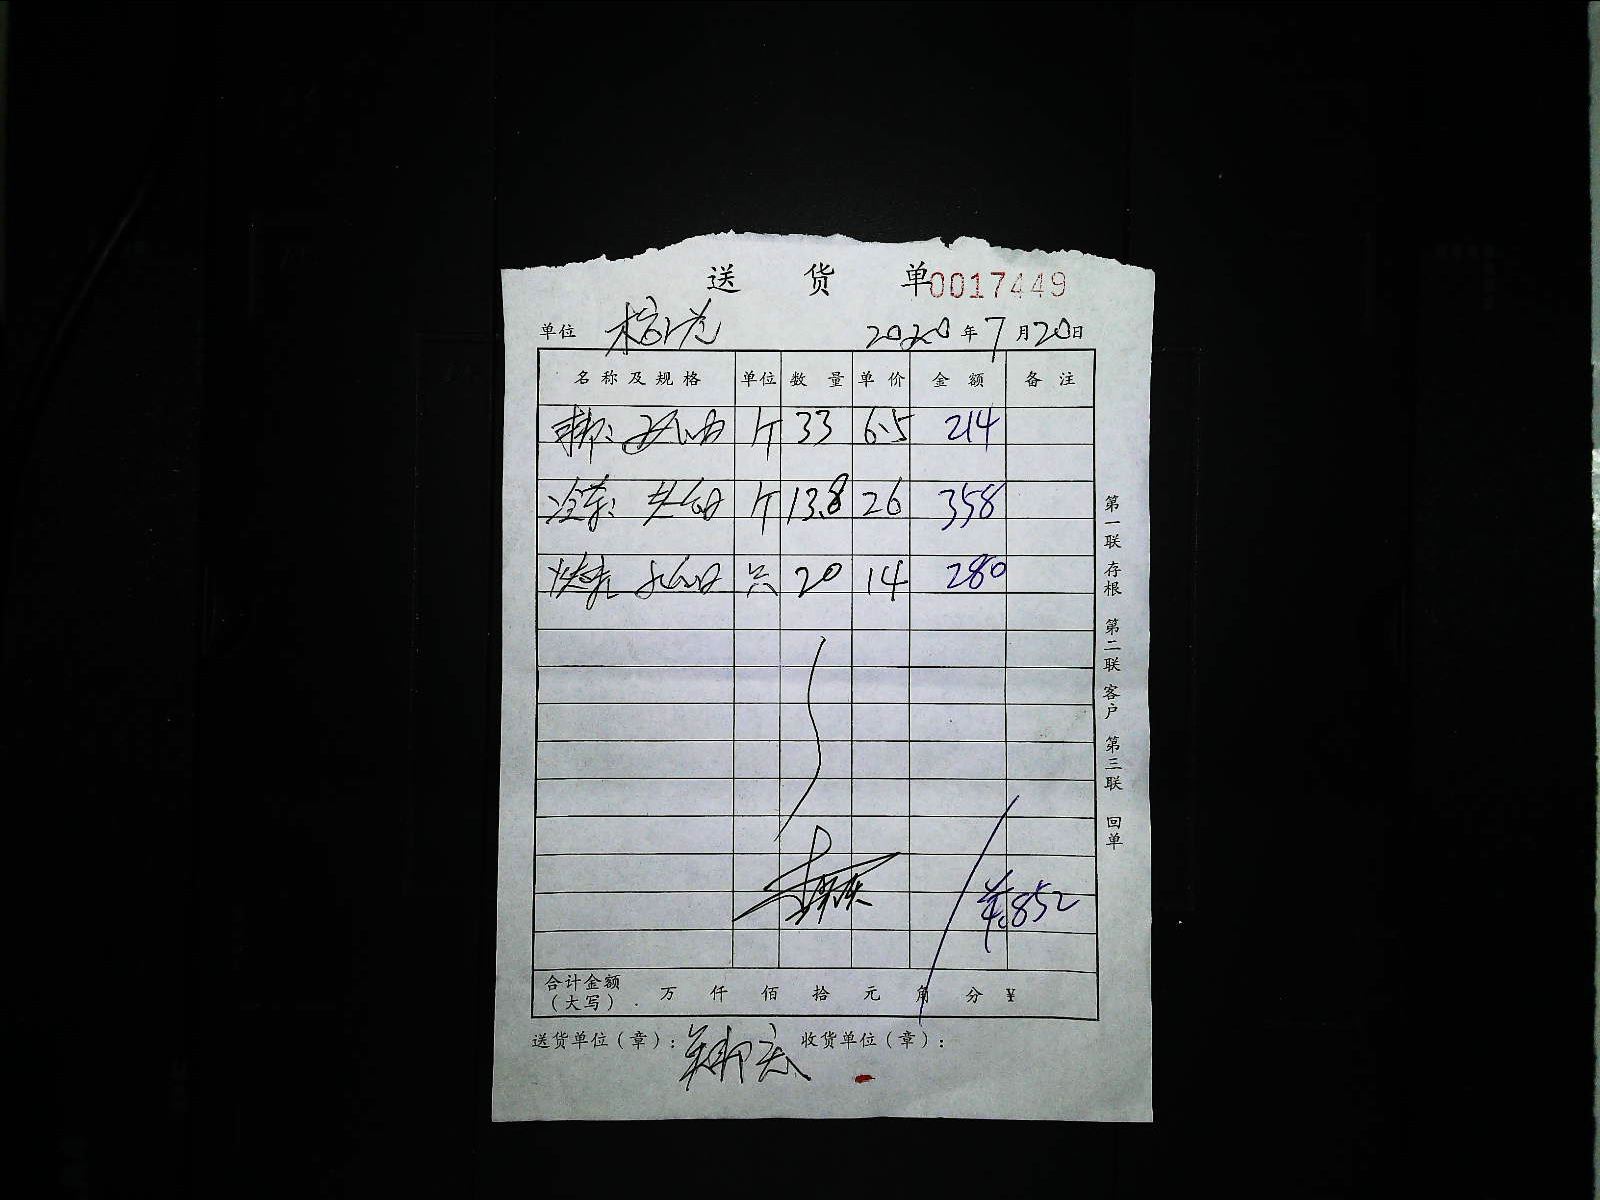 送 货 单 0017449
单位 2020 年 7 月 20 日
名称及规格 单位 数量 单价 金额 备注
斤 33 6.5 214
冷菜: 斤 13.8 26 358
只 20 14 280
¥:852
合计金额(大写) 万 仟 佰 拾 元 角 分 ¥
送货单位(章): 收货单位(章):
第一联 存根 第二联 客户 第三联 回单